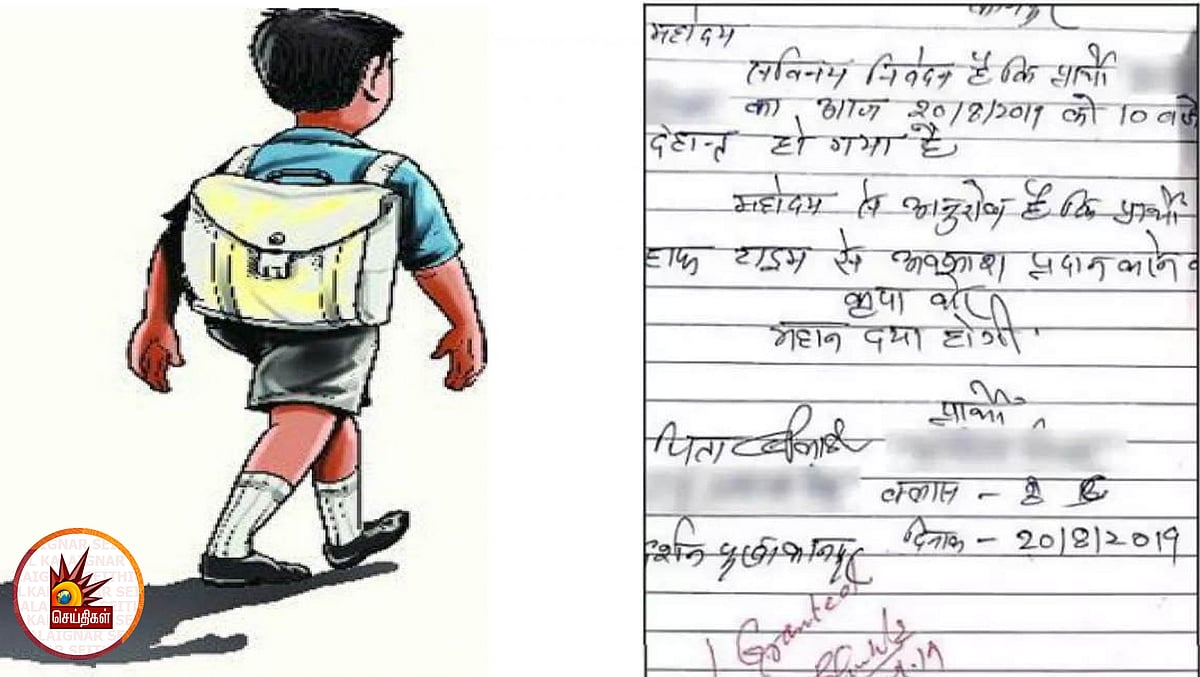 महोदय
सविनय निवेदन है कि प्रार्थी
का आज २०/8/2019 को 10 बजे
देहान्त हो गया है
महोदय से अनुरोध है कि प्रार्थी
हाफ टाइम से अवकाश प्रदान करने
कृपा करें
महान दया होगी
प्रार्थी
पिता
क्लास - 8
दिनांक - 20/8/2019
Granted
செய்திகள்